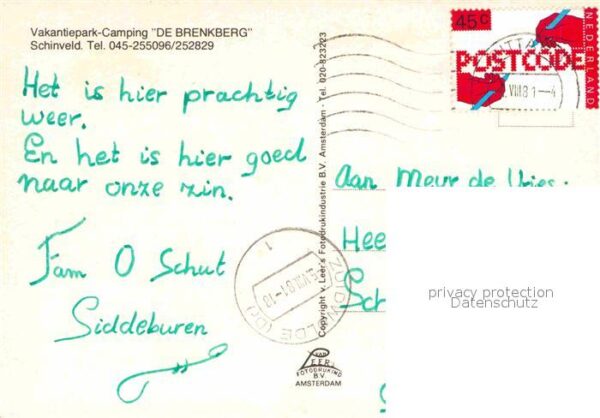 Vakantiepark-Camping "DE BRENKBERG"
Schinveld. Tel. 045-255096/252829
Het is hier prachtig
weer.
En het is hier goed
naar onze zin.
Fam O Schut
Siddeburen
Copyright v. Leer's Fotodrukindustrie B.V. Amsterdam - Tel. 020-823223
45c
NEDERLAND
POSTCODE
VIII.81-4
Aan Mevr de Vries.
Hee
Sch
ZUIDWOLDE (Dr)
1
VAN
LEER'S
FOTODRUKIND
B.V.
AMSTERDAM
privacy protection
Datenschutz